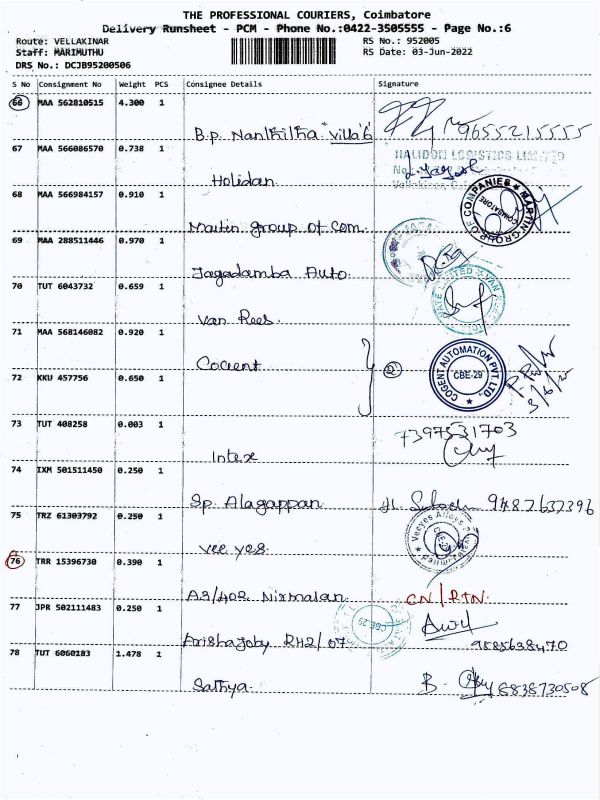 THE PROFESSIONAL COURIERS, Coimbatore
Delivery Runsheet - PCM - Phone No.:0422-3505555 - Page No.:6
Route: VELLAKINAR
RS No.: 952005
Staff: MARIMUTHU
RS Date: 03-Jun-2022
DRS No.: DCJB95200506
S No Consignment No Weight PCS Consignee Details Signature
66 MAA 562810515 4.300 1
B.p. Nanthitha "Villa" 6 9655215555
67 MAA 566086570 0.738 1
HALIDON LOGISTICS LIMITED
Holidan
68 MAA 566984157 0.910 1
MARTIN GROUP OF COMPANIES ★ COIMBATORE
Martin Group of Com.
69 MAA 288511446 0.970 1
Jagadamba Auto.
70 TUT 6043732 0.659 1
Van Rees.
71 MAA 568146082 0.920 1
Cocient
COGENT AUTOMATION PVT. LTD. ★ CBE-29
72 KKU 457756 0.650 1
3/6/22
73 TUT 408258 0.003 1
7397531703
Intex
74 IXM 501511450 0.250 1
Sp. Alagappan 9487637396
75 TRZ 61303792 0.250 1
Vee yes.
76 TRR 15396730 0.390 1
A3/402 Nirmalan CN/RTN.
77 JPR 502111483 0.250 1
CBE 29
Arishajoby RH2/07 9585638470
78 TUT 6060183 1.478 1
Sathya. B. 8838730508